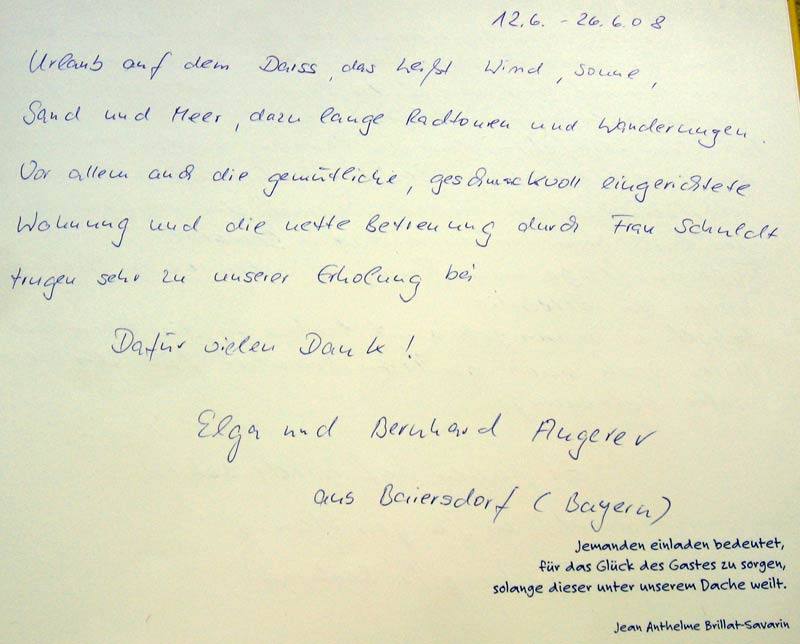 12.6. - 26.6.08
Urlaub auf dem Darss, das heißt Wind, Sonne,
Sand und Meer, dazu lange Radtouren und Wanderungen.
Vor allem auch die gemütliche, geschmackvoll eingerichtete
Wohnung und die nette Betreuung durch Frau Schuldt
trugen sehr zu unserer Erholung bei
Dafür vielen Dank!
Elga und Bernhard Angerer
aus Baiersdorf (Bayern)
Jemanden einladen bedeutet,
für das Glück des Gastes zu sorgen,
solange dieser unter unserem Dache weilt.
Jean Anthelme Brillat-Savarin